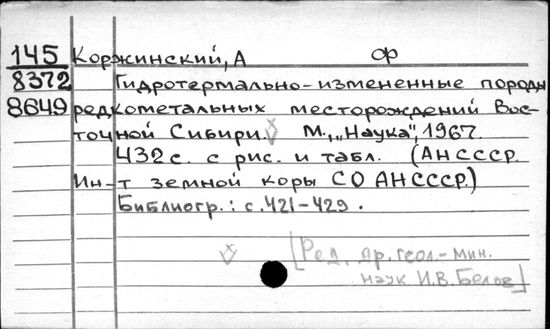 145 Коржинский, А ф
8372 Гидротермально-измененные породы
8649 редкометальных месторождений Вос-
точной Сибири. М., „Наука", 1967.
432 с. с рис. и табл. (АН СССР.
Ин-т земной коры СО АН СССР.)
Библиогр.: с. 421-429.
[Ред. др. геол.-мин.
наук И.В. Белов]